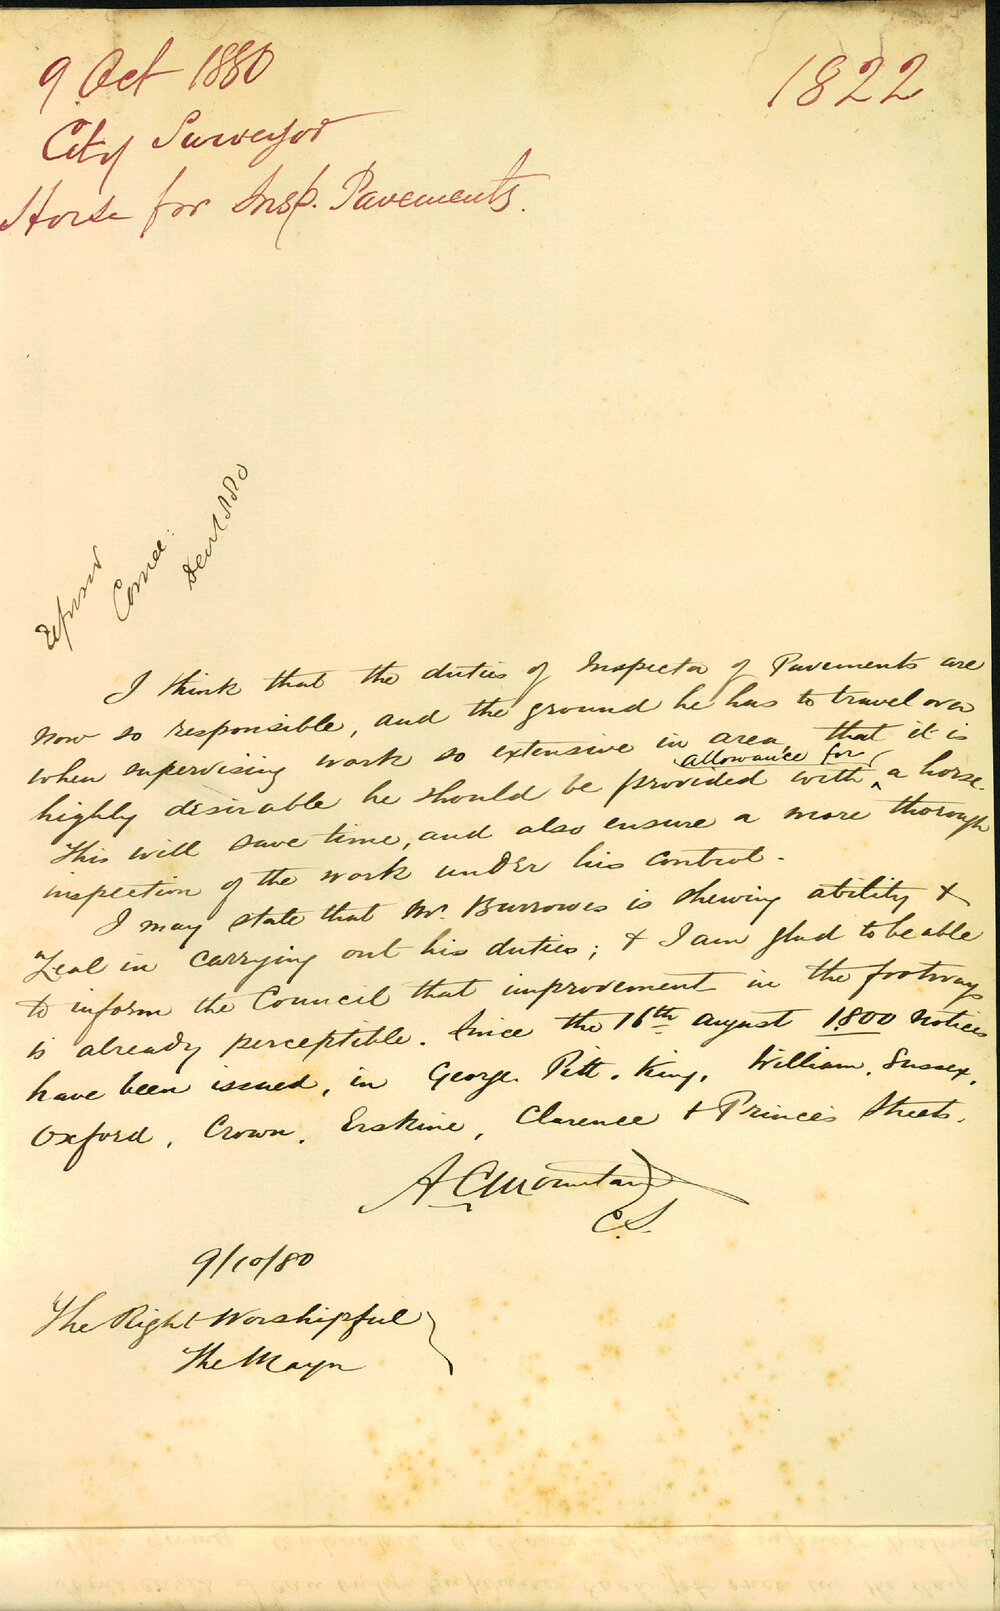 9 Oct 1880
1822
City Surveyor
Horse for Insp. Pavements.
Refused
Comee:
I think that the duties of Inspector of Pavements are
now so responsible, and the ground he has to travel over
when supervising work so extensive in area, that it is
highly desirable he should be provided with allowance for a horse.
This will save time, and also ensure a more thorough
inspection of the work under his control.
I may state that Mr. Burrowes is shewing ability &
Zeal in carrying out his duties; & I am glad to be able
to inform the Council that improvement in the footways
is already perceptible. Since the 16th August 1800 notices
have been issued, in George. Pitt. King, William, Sussex,
Oxford, Crown, Erskine, Clarence & Princes Streets.
A C Mountain
C.S.
9/10/80
The Right Worshipful
The Mayor